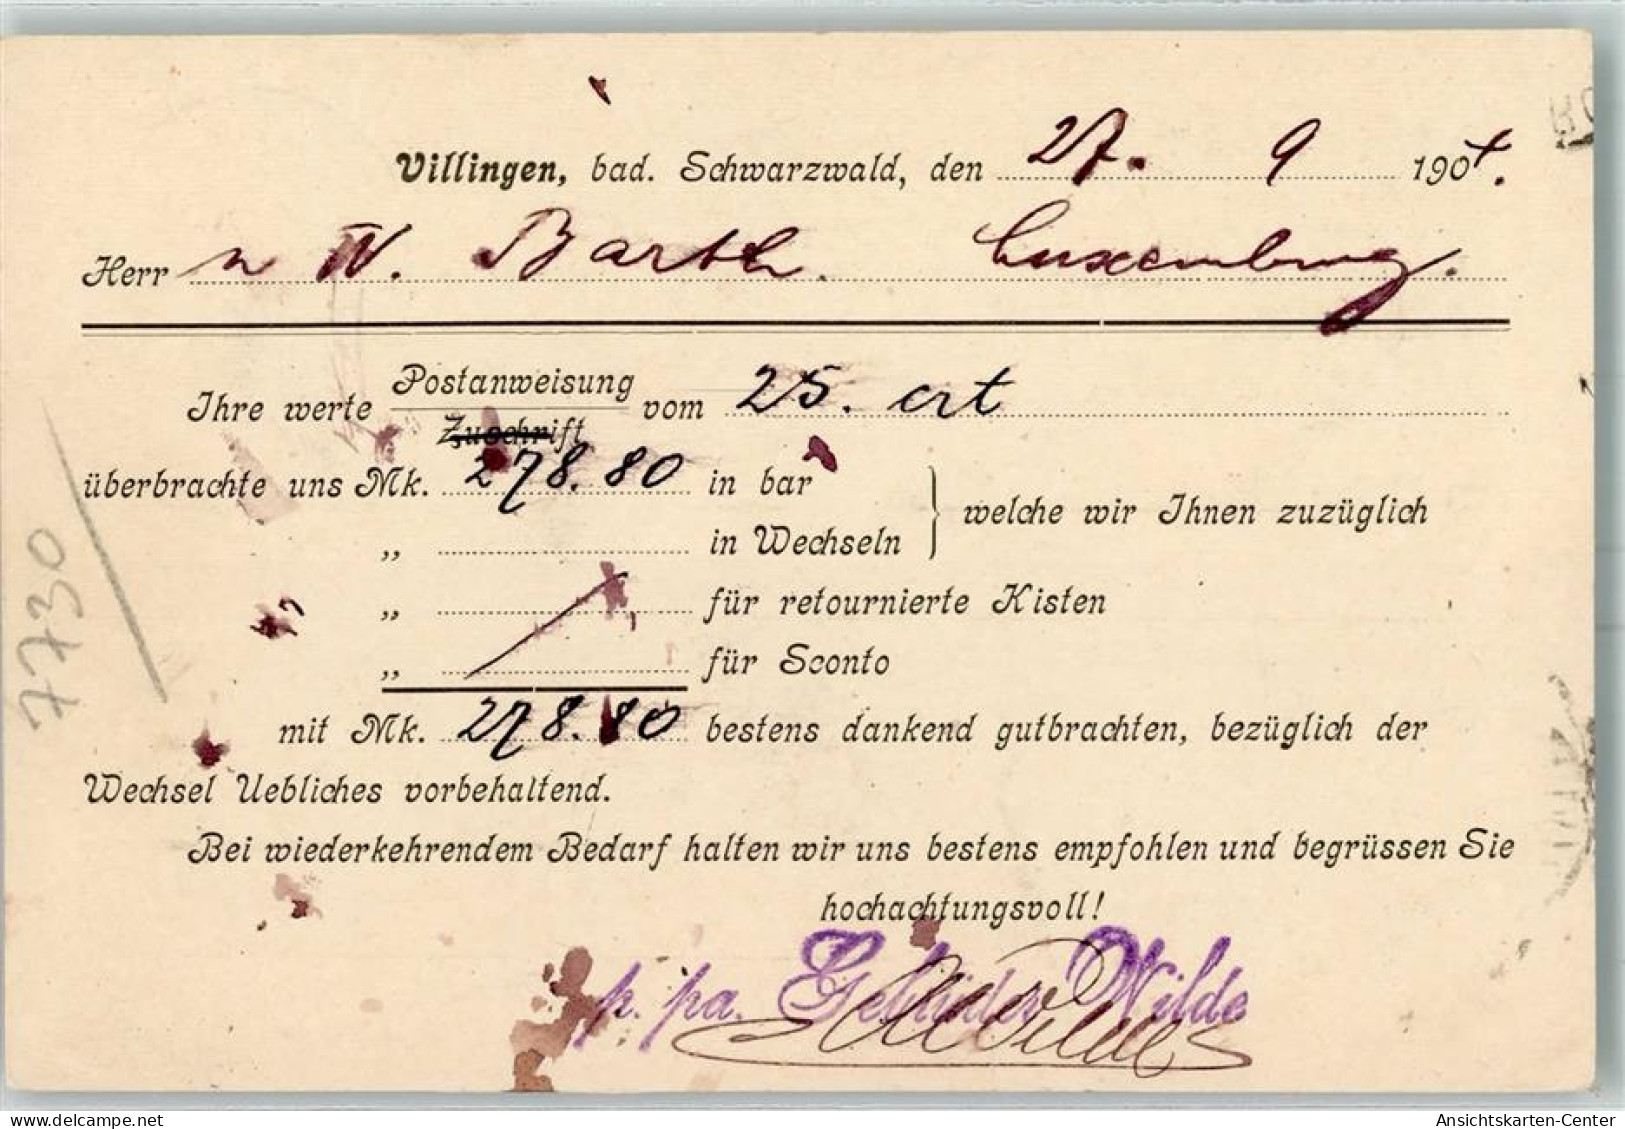 Villingen, bad. Schwarzwald, den 27. 9 1904.
Herrn W. Barth. Luxemburg.
Ihre werte Postanweisung vom 25. crt
Zuschrift
überbrachte uns Mk. 278.80 in bar
„ in Wechseln } welche wir Ihnen zuzüglich
„ für retournierte Kisten
„ für Sconto
mit Mk. 278.80 bestens dankend gutbrachten, bezüglich der
Wechsel Uebliches vorbehaltend.
Bei wiederkehrendem Bedarf halten wir uns bestens empfohlen und begrüssen Sie
hochachtungsvoll!
p. pa. Gebrüder Wilde
7730
Ansichtskarten-Center